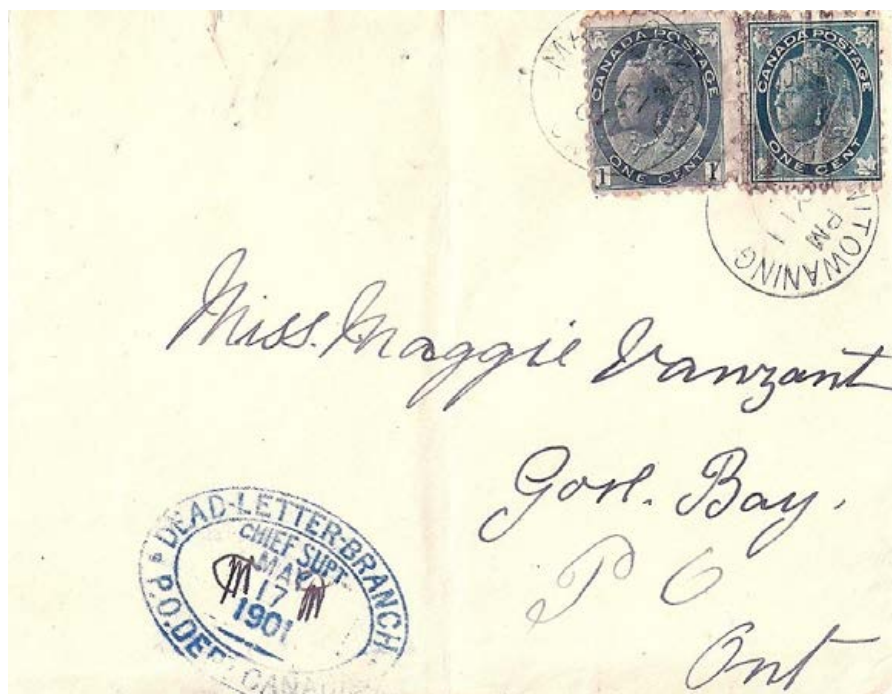 CANADA POSTAGE
ONE CENT
1 1
CANADA POSTAGE
ONE CENT
ITOWANING
PM
Miss. Maggie Vanzant
Gore. Bay.
P O
Ont
DEAD-LETTER-BRANCH
CHIEF SUPT
MAY
17
1901
P.O. DEPT CANADA